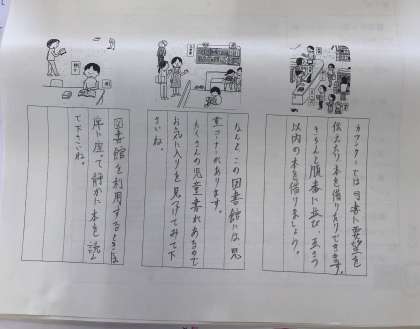 カウンターでは司書に要望を
伝えたり本を借りたりできます。
きちんと順番に並び、五さつ
以内の本を借りましょう。
なんと、この図書館には、児
童コーナーがあります。
たくさんの児童書があるので
お気に入りを見つけてみて下
さいね。
図書館を利用するときは
席に座って静かに本を読ん
で下さいね。